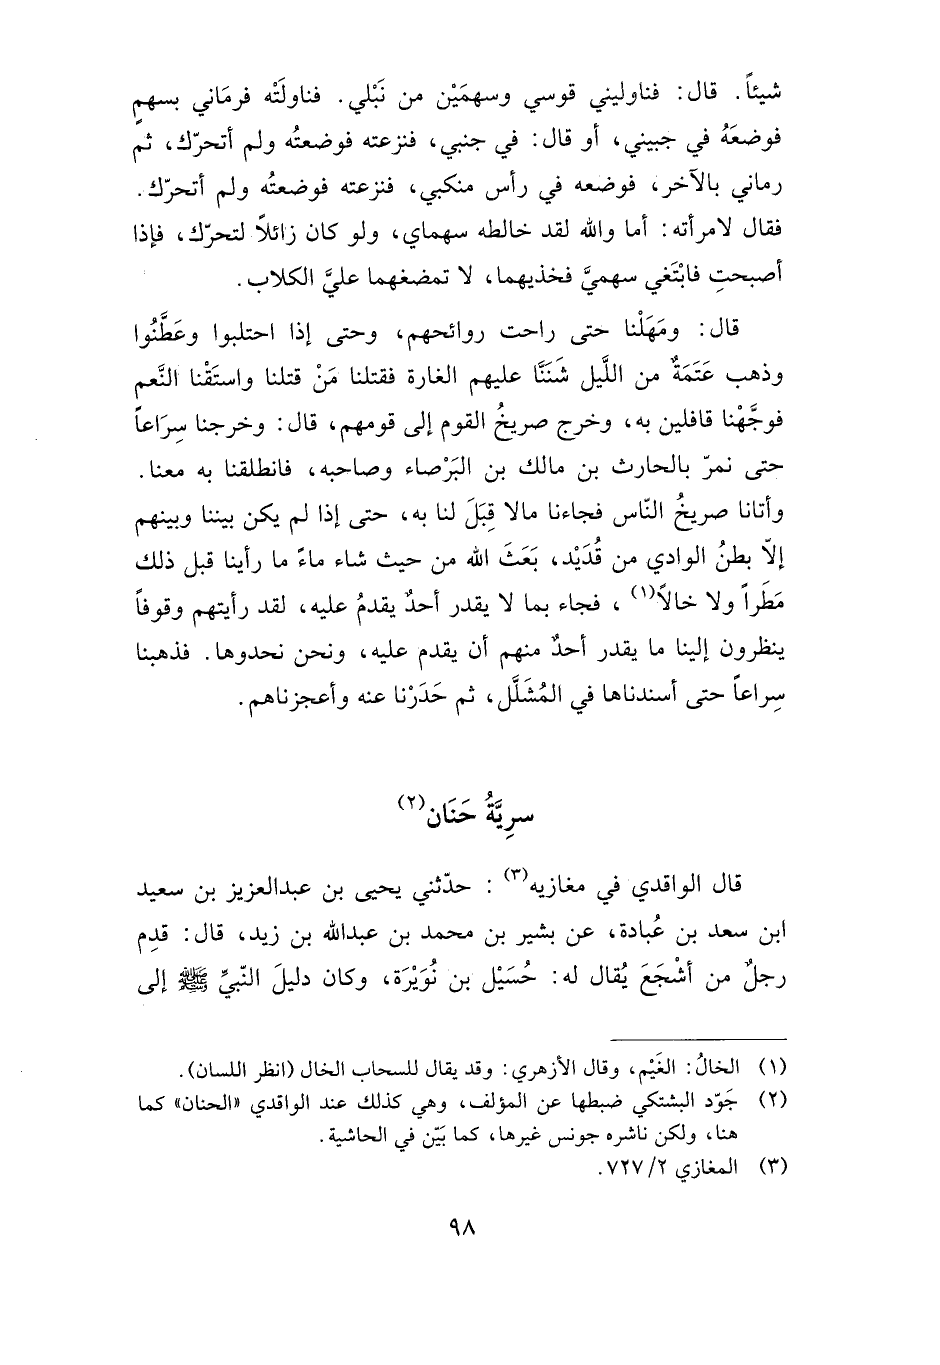 شيئاً. قال: فناوليني قوسي وسهمَيْن من نَبْلي. فناولَتْه فرمَاني بسهمٍ
فوضعَهُ في جبيني، أو قال: في جنبي، فنزعته فوضعتُه ولم أتحرّك، ثم
رماني بالآخر، فوضعه في رأس منكبي، فنزعته فوضعتُه ولم أتحرّك.
فقال لامرأته: أما والله لقد خالطه سهماي، ولو كان زائلاً لتحرّك، فإذا
أصبحتِ فابْتَغي سهميَّ فخذيهما، لا تمضغهما عليَّ الكلاب.
قال: ومَهَلْنا حتى راحت روائحهم، وحتى إذا احتلبوا وعَطَّنُوا
وذهب عَتَمَةٌ من اللَّيل شَنَنَّا عليهم الغارة فقتلنا مَنْ قتلنا واستَقْنا النَّعم
فوجَّهْنا قافلين به، وخرج صريخُ القوم إلى قومهم، قال: وخرجنا سِرَاعاً
حتى نمرّ بالحارث بن مالك بن البَرْصاء وصاحبه، فانطلقنا به معنا.
وأتانا صريخُ النّاس فجاءنا مالا قِبَلَ لنا به، حتى إذا لم يكن بيننا وبينهم
إلاّ بطنُ الوادي من قُدَيْد، بَعَثَ الله من حيث شاء ماءً ما رأينا قبل ذلك
مَطَراً ولا خالاً(١) ، فجاء بما لا يقدر أحدٌ يقدمُ عليه، لقد رأيتهم وقوفاً
ينظرون إلينا ما يقدر أحدٌ منهم أن يقدم عليه، ونحن نحدوها. فذهبنا
سِراعاً حتى أسندناها في المُشَلَّل، ثم حَدَرْنا عنه وأعجزناهم.
سرِيَّةُ حَنَان(٢)
قال الواقدي في مغازيه(٣) : حدّثني يحيى بن عبدالعزيز بن سعيد
ابن سعد بن عُبادة، عن بشير بن محمد بن عبدالله بن زيد، قال: قدِم
رجلٌ من أشْجَعَ يُقال له: حُسَيْل بن نُوَيْرَة، وكان دليلَ النّبيِّ ﷺ إلى
(١) الخالُ: الغَيْم، وقال الأزهري: وقد يقال للسحاب الخال (انظر اللسان).
(٢) جَوّد البشتكي ضبطها عن المؤلف، وهي كذلك عند الواقدي «الحنان» كما
هنا، ولكن ناشره جونس غيرها، كما بَيّن في الحاشية.
(٣) المغازي ٢/ ٧٢٧.
٩٨